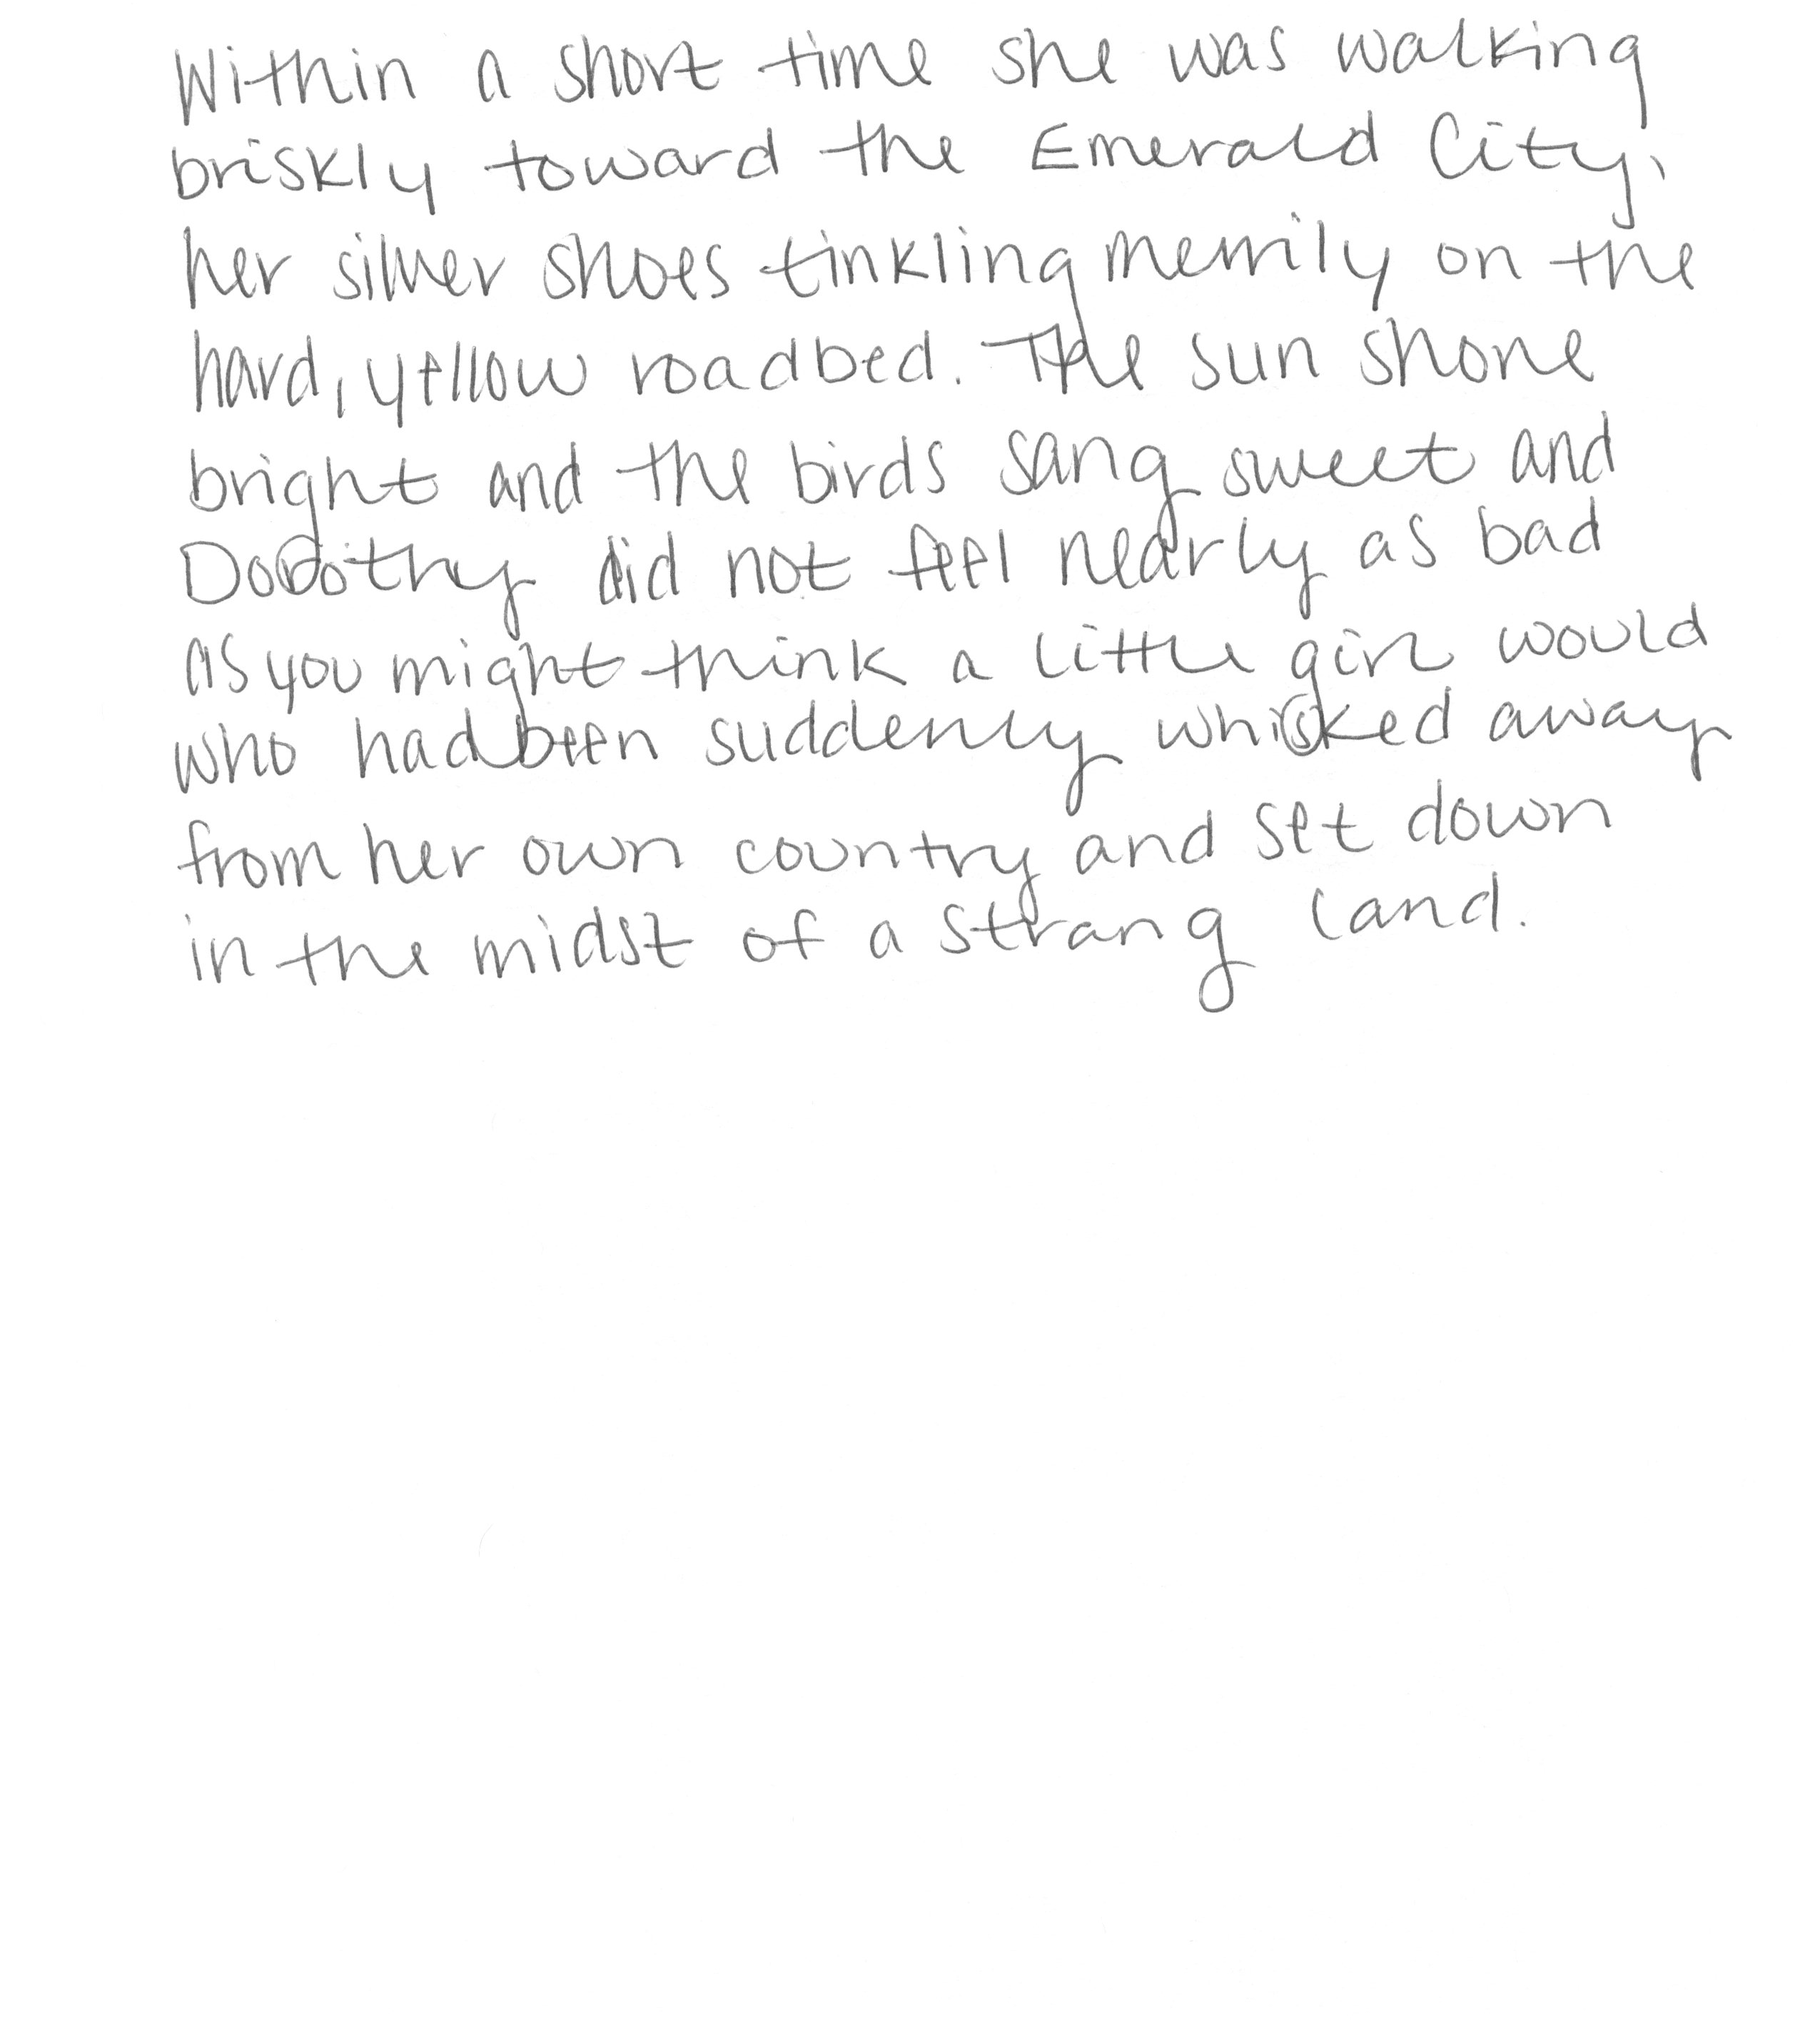 Within a short time she was walking
briskly toward the Emerald City,
her silver shoes tinkling merrily on the
hard, yellow roadbed. The sun shone
bright and the birds sang sweet and
Dorothy did not feel nearly as bad
as you might think a little girl would
who had been suddenly whisked away
from her own country and set down
in the midst of a strang land.